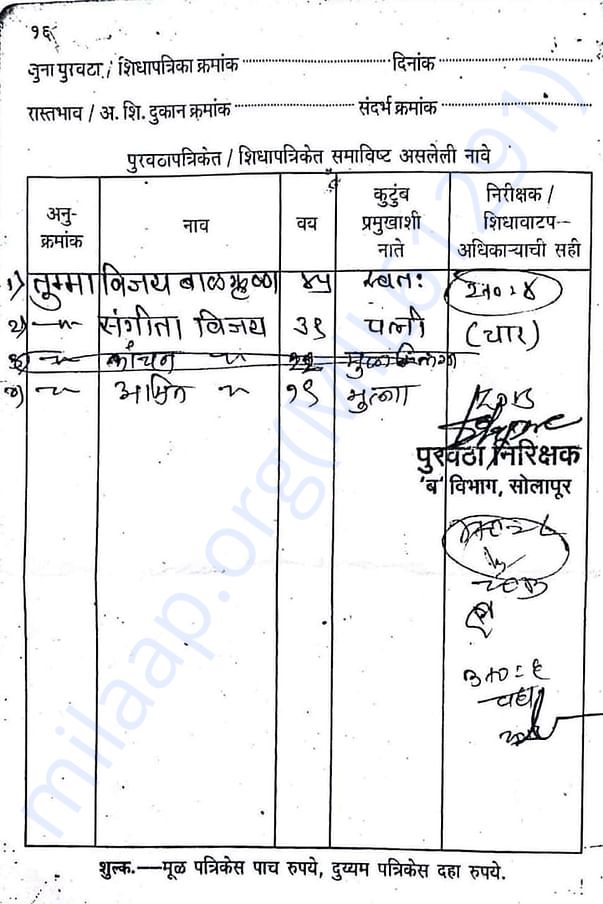 १६
जुना पुरवठा / शिधापत्रिका क्रमांक ........ दिनांक ........
रास्तभाव / अ. शि. दुकान क्रमांक ........ संदर्भ क्रमांक ........
पुरवठापत्रिकेत / शिधापत्रिकेत समाविष्ट असलेली नावे
अनु-क्रमांक नाव वय कुटुंब प्रमुखाशी नाते निरीक्षक / शिधावाटप-अधिकाऱ्याची सही
१) तुम्मा विजय बाळकृष्ण ४५ स्वतः
२) —〃— संगीता विजय ३९ पत्नी (चार)
३) —〃— कांचन 〃
४) —〃— अमित 〃 १९ मुलगा
पुरवठा निरिक्षक
'ब' विभाग, सोलापूर
शुल्क.—मूळ पत्रिकेस पाच रुपये, दुय्यम पत्रिकेस दहा रुपये.
milaap.org(MIL61291)